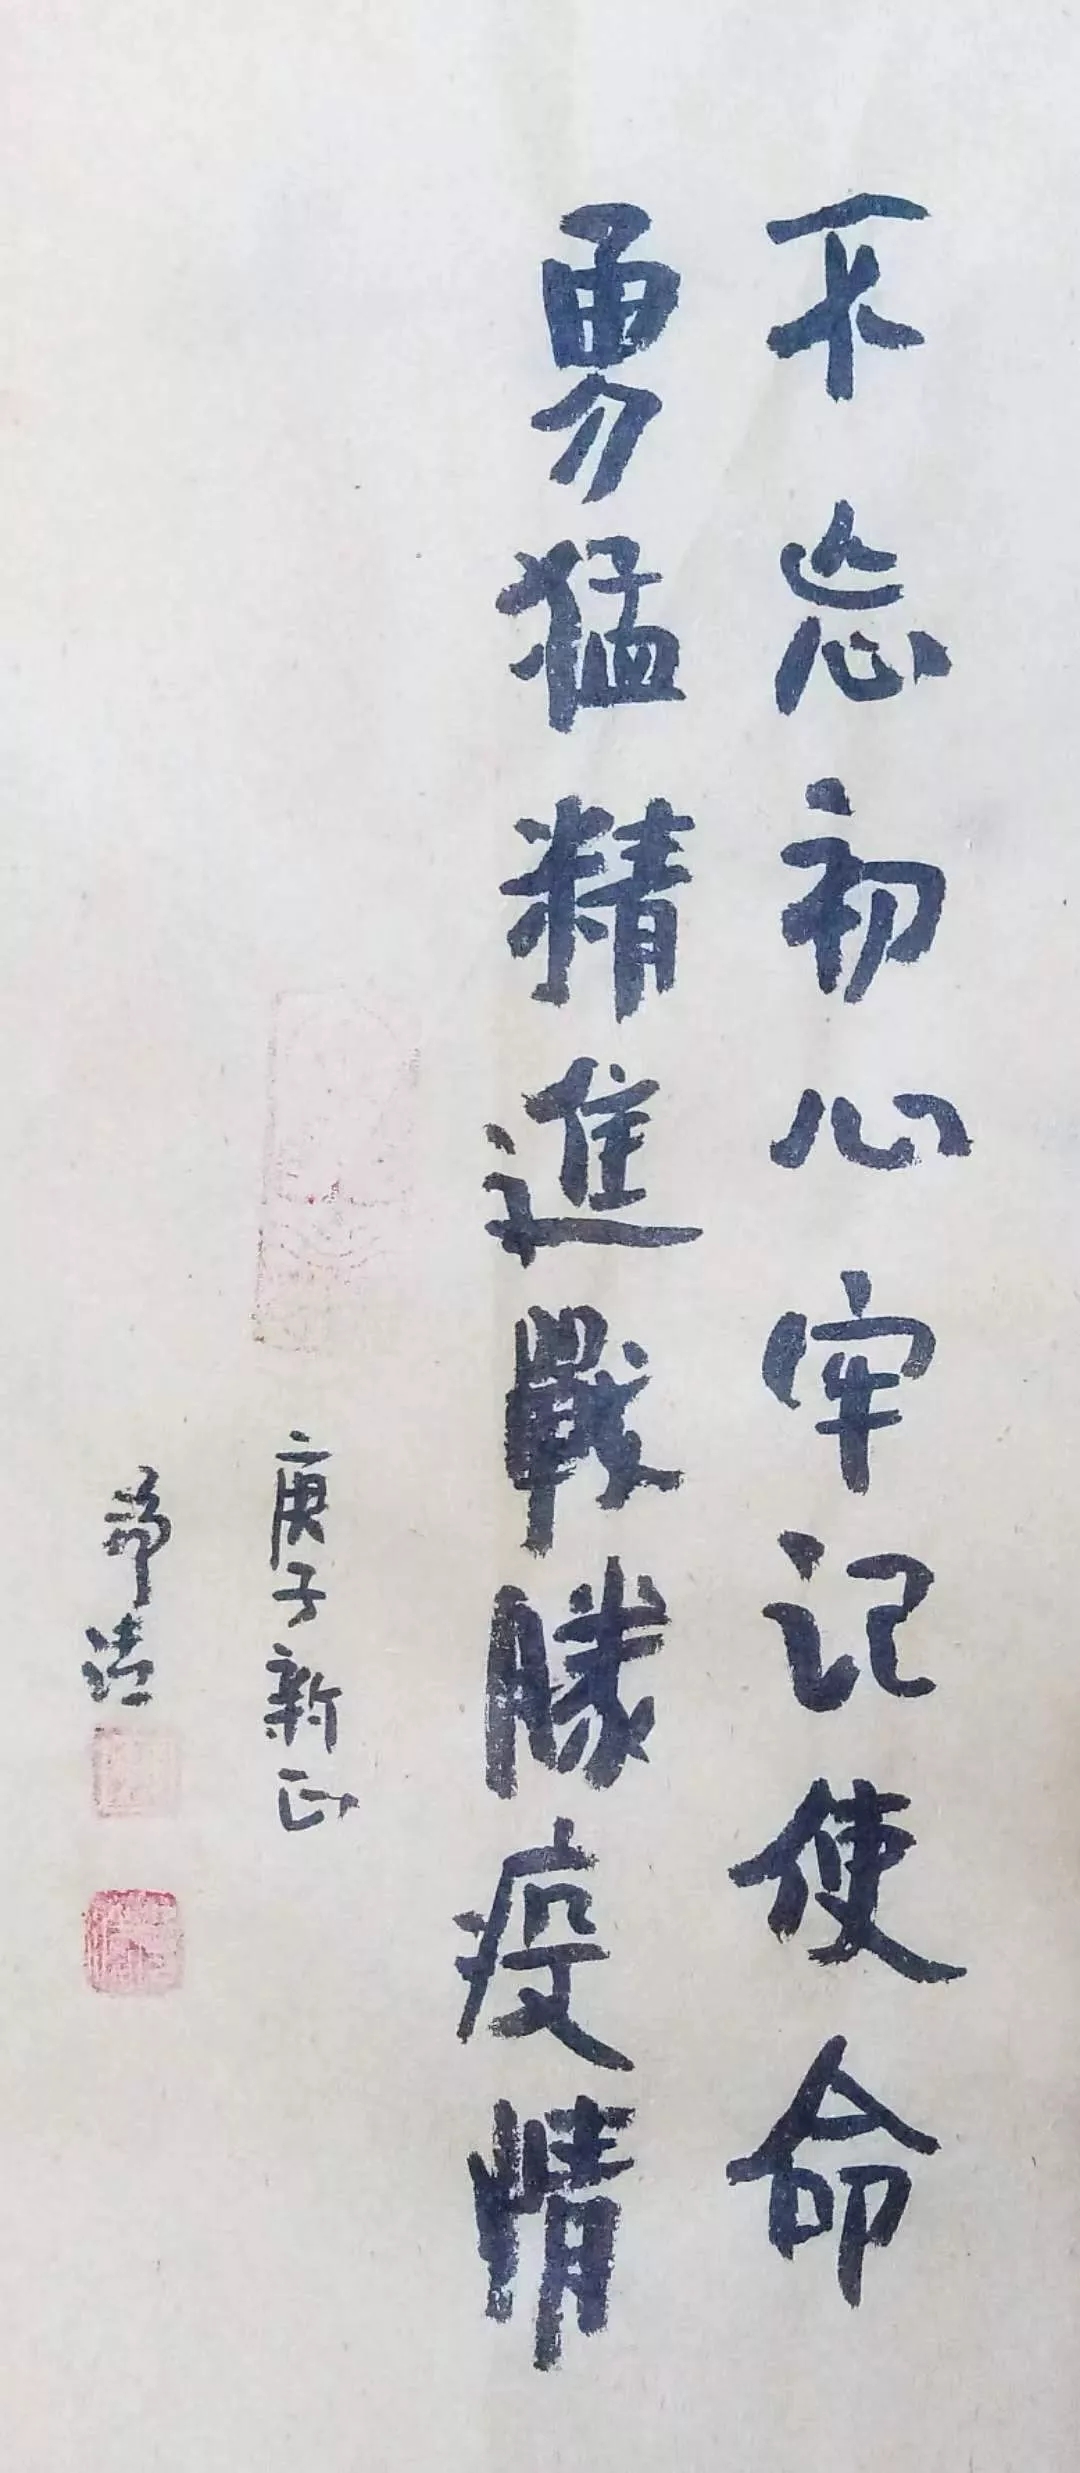 不忘初心牢记使命
勇猛精進戰勝疫情
庚子新正